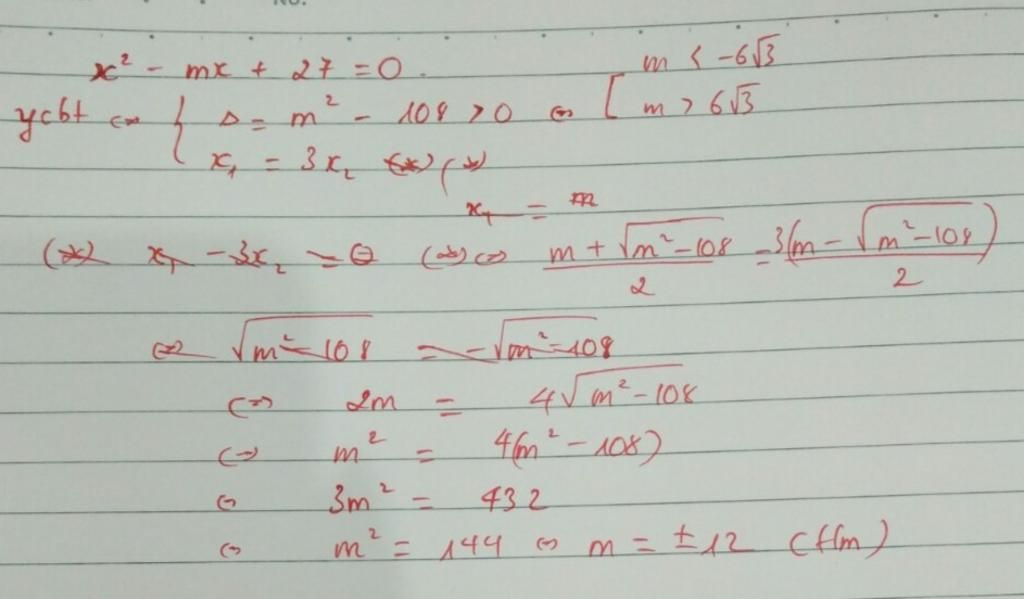 NO.
x² - mx + 27 = 0. m < -6√3
ycbt ⇔ { Δ = m² - 108 > 0 ⇔ [ m > 6√3
x₁ = 3x₂ (*) (*)
x₁ = m
(*) x₁ - 3x₂ = 0 (*) ⇔ (m + √(m² - 108))/2 = 3(m - √(m² - 108))/2
⇔ √(m² - 108) = -√(m² - 108)
⇔ 2m = 4√(m² - 108)
⇔ m² = 4(m² - 108)
⇔ 3m² = 432
⇔ m² = 144 ⇔ m = ±12 (t/m)